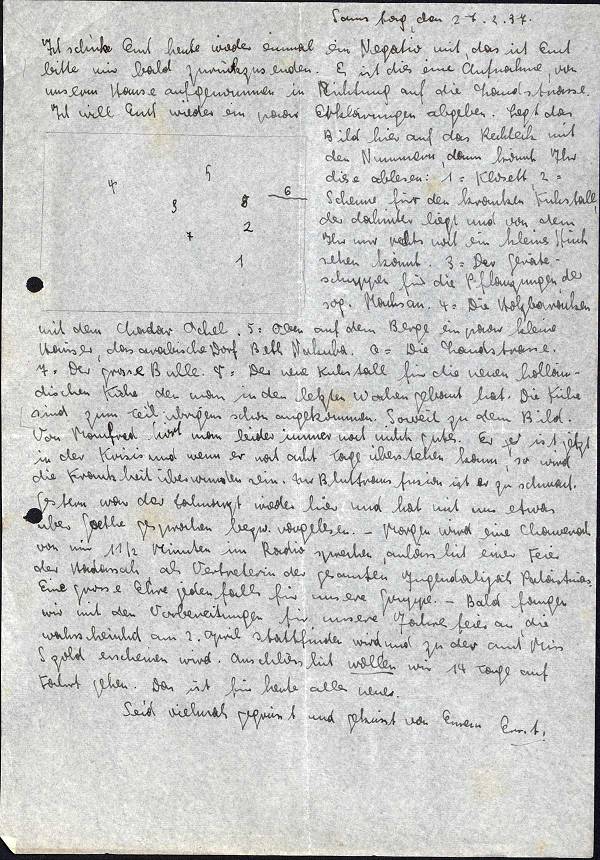 Samstag, den 27.2.37.
Ich schicke Euch heute wieder einmal ein Negativ mit, das ist Euch
bitte mir bald zurückzusenden. Es ist dies eine Aufnahme, von
unserm Hause aufgenommen in Richtung auf die Landstrasse.
Ich will Euch wieder ein paar Erklärungen abgeben. Legt das
Bild hier auf das Rechteck mit
den Nummern, dann könnt Ihr
diese ablesen: 1 = Klosett 2 =
Scheune für den kranken Kuhstall,
der dahinter liegt und von dem
Ihr nur rechts noch ein kleines Stück
sehen könnt. 3 = Der Geräte-
schuppen für die Pflanzungen, der
sog. Machsan. 4 = Die Holzbaracken
4 5 6
3 8
7 2
1
mit dem Chadar Ochel. 5 = Oben auf dem Berge ein paar kleine
Häuser, das arabische Dorf Beth Nakuba. 6 = Die Landstrasse.
7 = Der grosse Bulle. 8 = Der neue Kuhstall für die neuen hollän-
dischen Kühe den man in den letzten Wochen gebaut hat. Die Kühe
sind zum Teil übrigens schon angekommen. Soweit zu dem Bild.
Von Manfred hört man leider immer noch nichts gutes. Er ist jetzt
in der Krisis und wenn er noch acht Tage überstehen kann, so wird
die Krankheit überwunden sein. Zur Bluttransfusion ist er zu schwach.
Gestern war der wieder hier und hat mit uns etwas
über Goethe gesprochen bezw. vorgelesen. – Morgen wird eine Chawerah
von mir 11/2 Minuten im Radio sprechen, anlässlich einer Feier
der Hadassah als Vertreterin der gesamten Jugendalijah Palästinas.
Eine grosse Ehre jedenfalls für unsere Gruppe. – Bald fangen
wir mit den Vorbereitungen für unsere Jahresfeier an, die
wahrscheinlich am 2. April stattfinden wird und zu der auch Miss
Szold erscheinen wird. Anschliessend wollen wir 14 Tage auf
Fahrt gehen. Das ist für heute alles neue.
Seid vielmals gegrüsst und geküsst von Eurem Ernst.